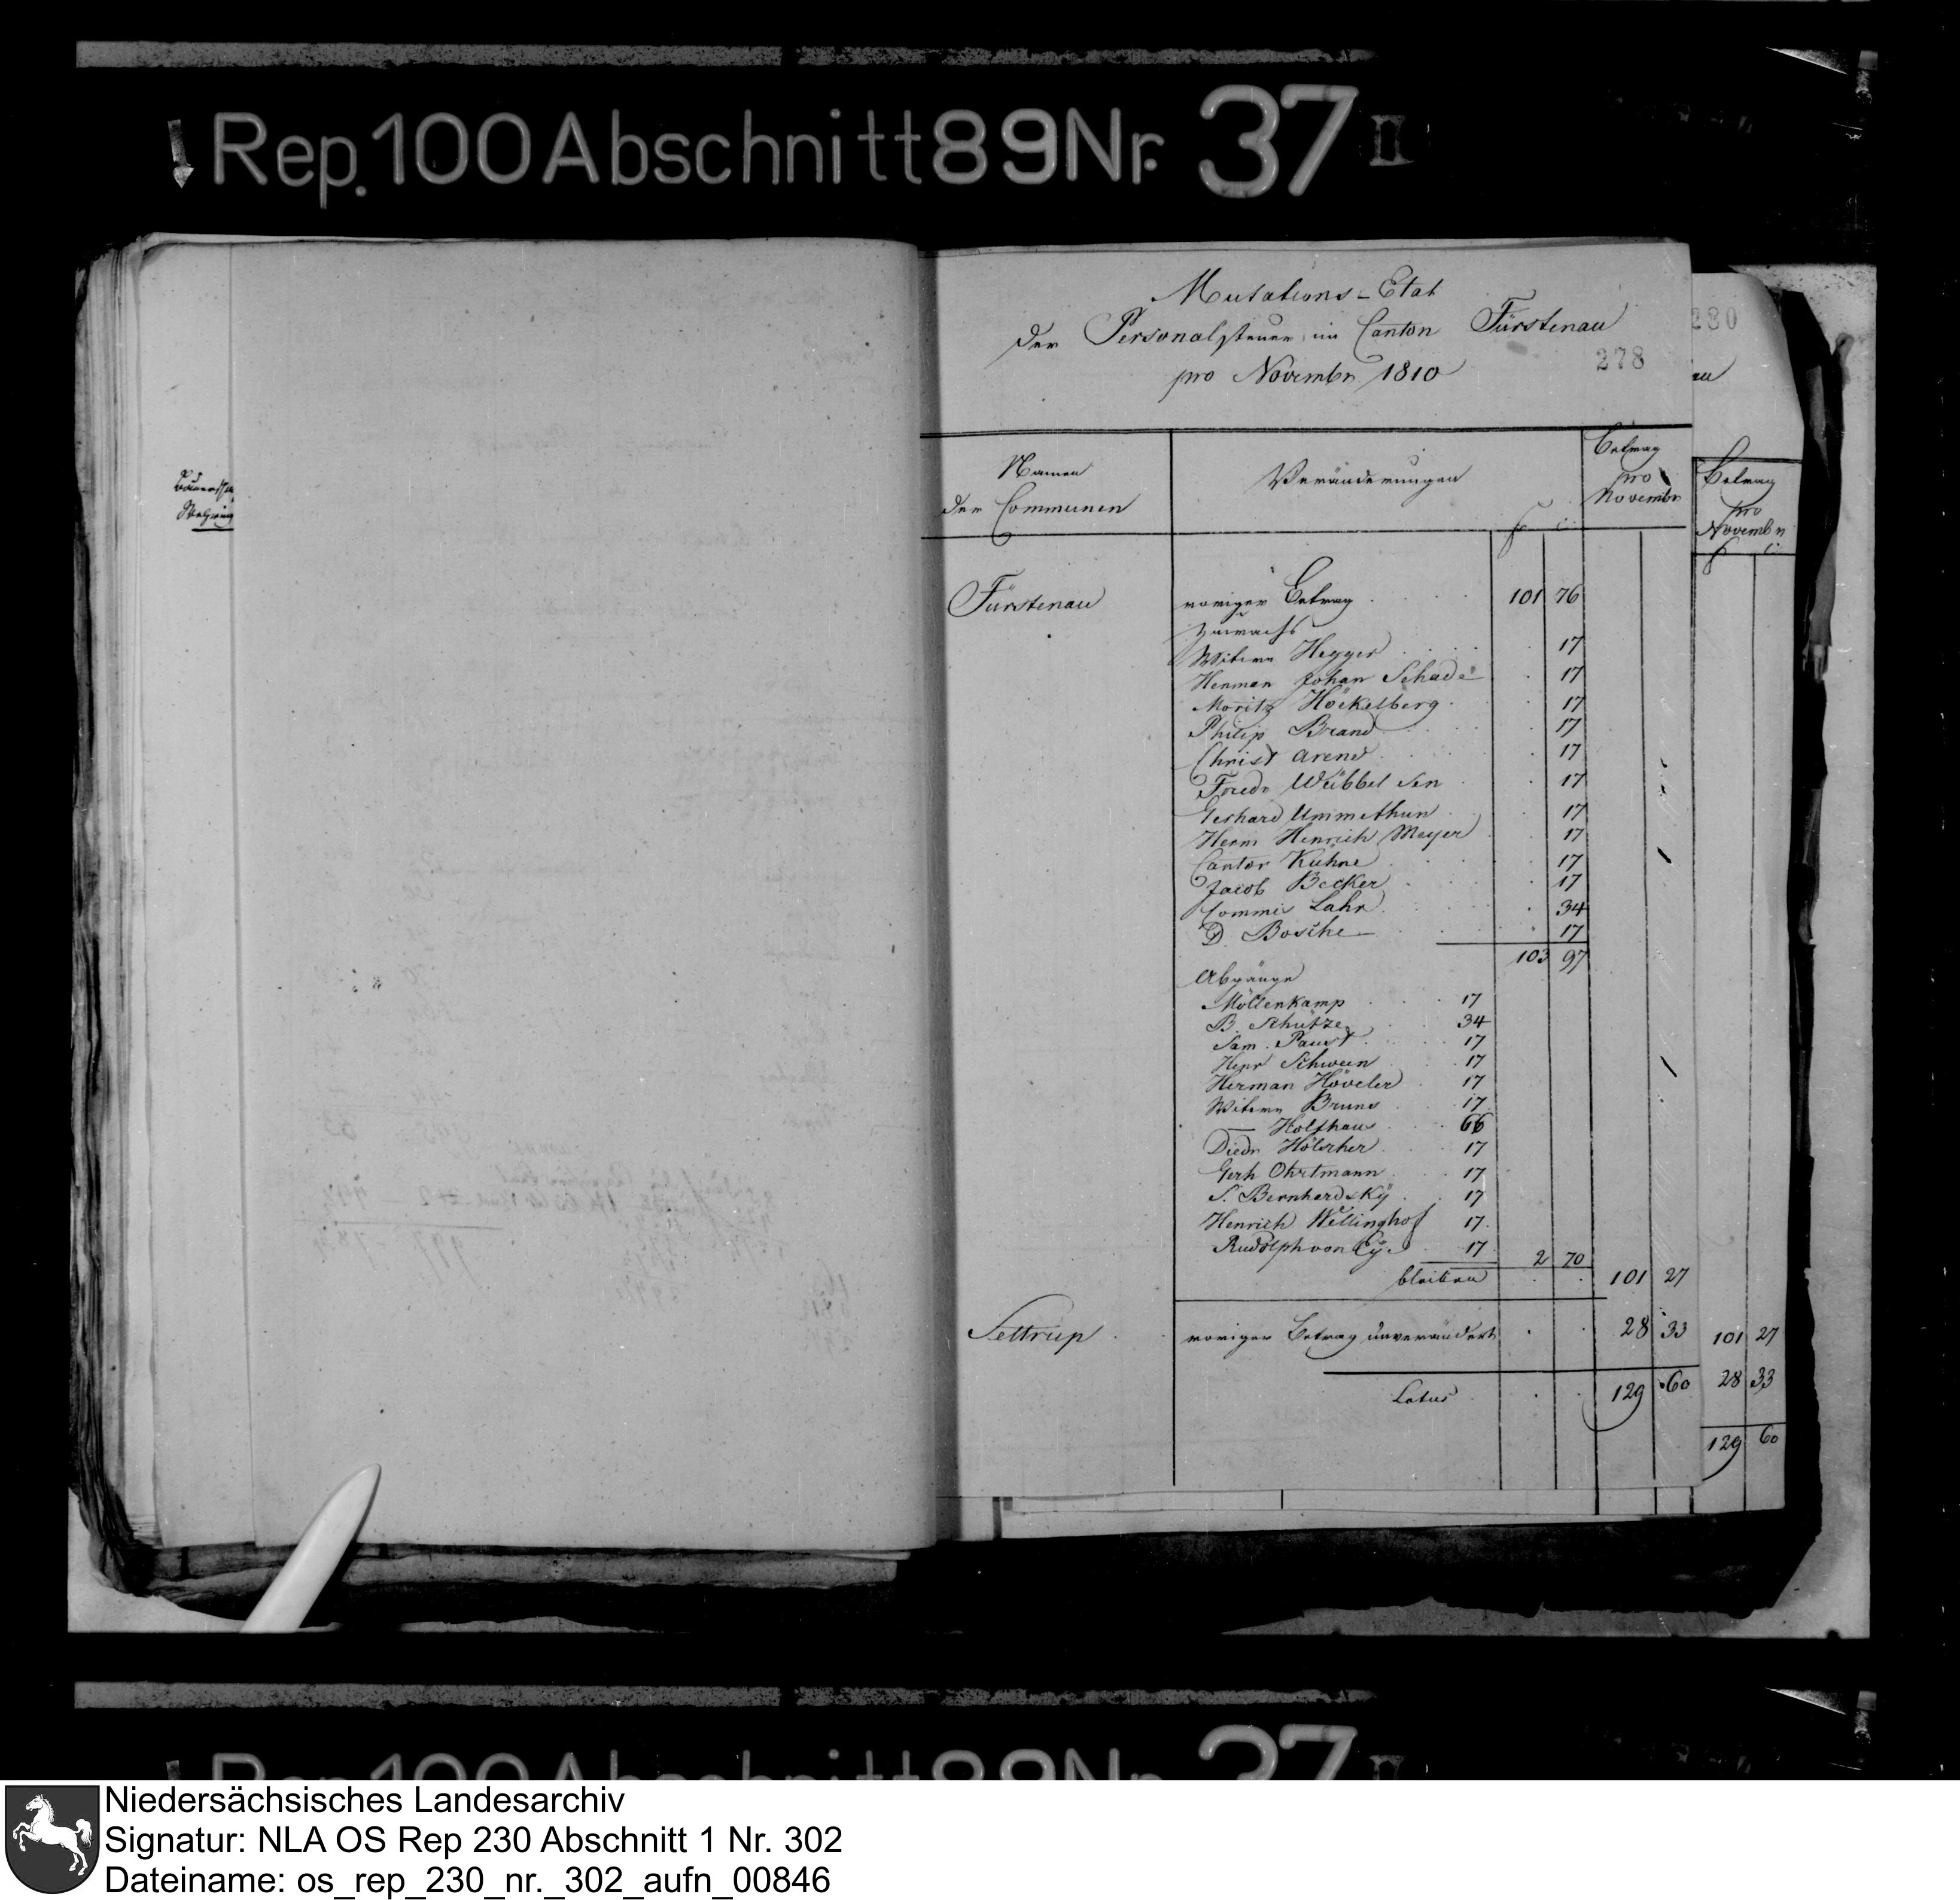 Rep. 100 Abschnitt 89 Nr. 37 II
Mutations-Etat
der Personalsteuer im Canton Fürstenau
pro Novembr 1810
278
280
au
Namen
der Communen
Veränderungen
f c.
Betrag
pro
Novembr
Betrag
pro
Novembr
f c.
Fürstenau voriger Betrag 101 76
Zuwachs
Witwe Hegger 17
Herman Johan Schade 17
Moritz Höckelberg 17
Philip Brand 17
Christ Arend 17
Friedr Wübbel Sen 17
Gerhard Ummethun 17
Herm Henrich Meyer 17
Cantor Kuhne 17
Jacob Becker 17
Commis Lahr 34
D. Bosche 17
103 97
Abgänge
Möllenkamp 17
B. Schutze 34
Sam. Paust 17
Henr Schwen 17
Herman Höveler 17
Witwe Bruns 17
— Holthaus 66
Diedr Hölscher 17
Gerh Ohrtmann 17
S. Bernhardsky 17
Henrich Wellinghof 17
Rudolph von Eye 17 2 70
bleiben 101 27
Settrup voriger Betrag unverändert 28 33
Latus 129 60
101 27
28 33
129 60
Rep. 100 Abschnitt 89 Nr. 37 II
Niedersächsisches Landesarchiv
Signatur: NLA OS Rep 230 Abschnitt 1 Nr. 302
Dateiname: os_rep_230_nr._302_aufn_00846